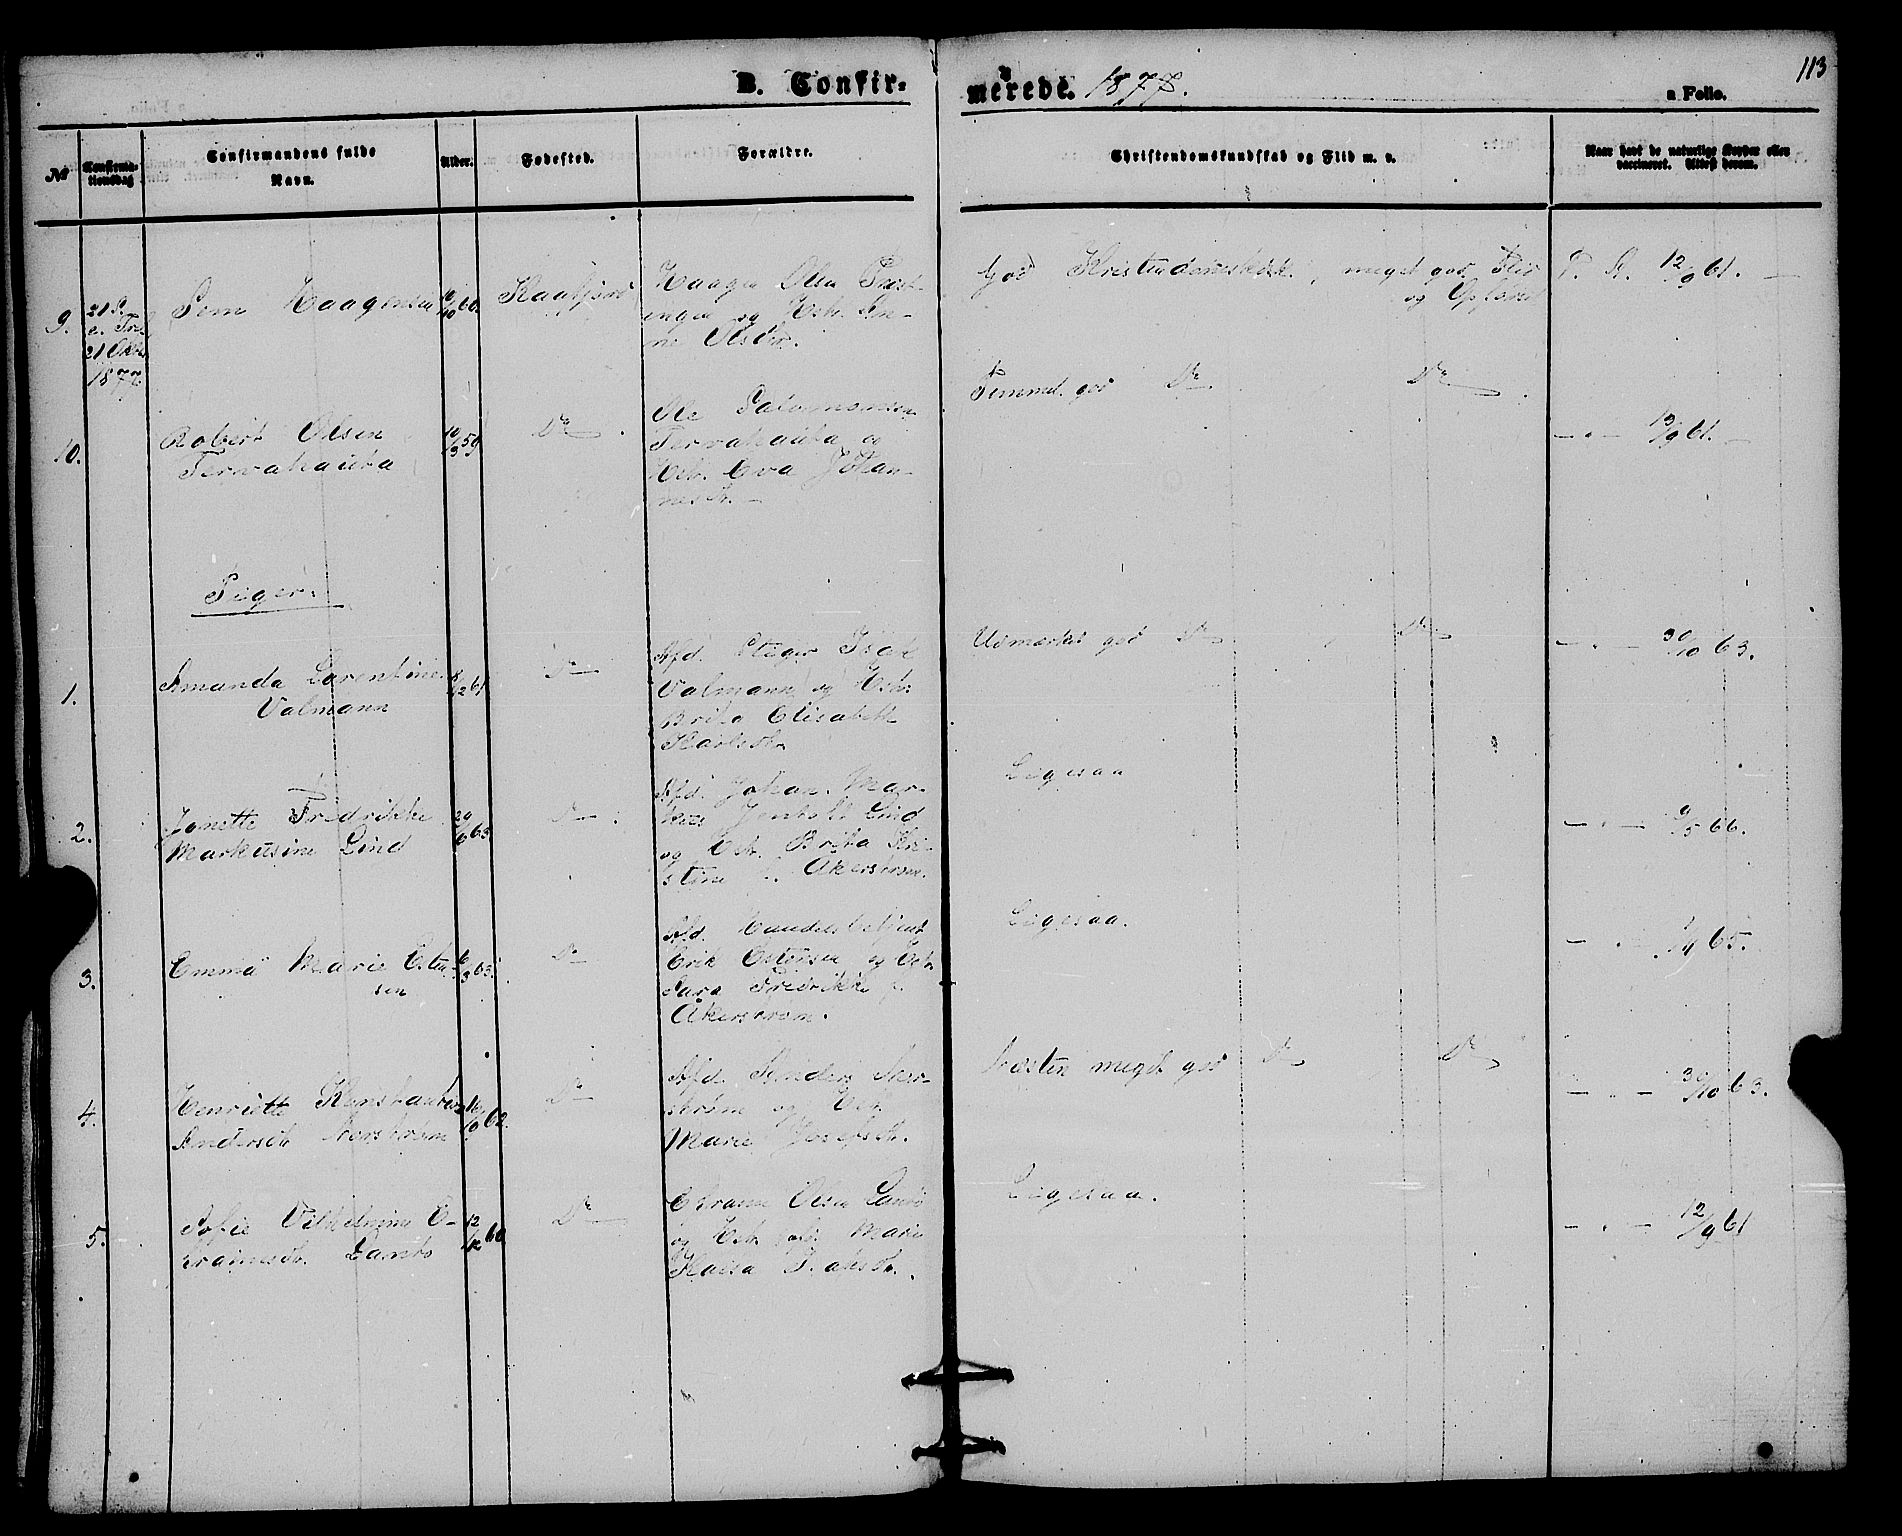 B. Confir=
merede. 1877.
113
a Folio.
No
Confirma-
tionsdag
Confirmandens fulde
Navn.
Alder.
Fødested.
Forældre.
Christendomskundskab og Flid m. v.
Naar havt de naturlige Kopper eller
vaccineret. Attest herom.
9.
21 S.
e. Tref.
21 Oktbr.
1877
Sem Haagensen
10/60
Kaafjord
Haagen Olsen
og Hstr. An-
ne Olsdtr.
God Kristendomskdsk., meget god Flid
og Opførsel
P. A. 12/9 61. —
10.
Robert Olsen
Tervahauta
10/3 59
Do
Ole Salomonsen
Tervahauta og
Hstr. Eva Johan-
nesdtr. —
Temmel. god Do Do
— " — 13/9 61. —
Piger:
1.
Amanda Larentine
Valmann
8/12 61
Do
Afd. Stiger Isak
Valmann og Hstr.
Brita Elisabeth
Karlsdtr.
Udmærket god Do Do
— " — 30/10 63.
2.
Janette Fredrikke
Markusine Lind
29/6 63
Do
Afd. Johan Mar-
kus Lind
og Hstr. Brita Kri-
stine f. Åkerstrøm.
Ligesaa
— " — 9/5 66.
3.
Emma Marie Esten-
sen
6/3 63.
Do
Afd. Handelsbetjent
Erik Estensen og Hstr.
Sara Fredrikke f.
Åkerstrøm.
Ligesaa.
— " — 65.
4.
Henriette Konstantine
Andersdtr. Norstrøm
16/9 62.
Do
Afd. Anders Nor-
strøm og Hstr.
Marie Josefsdtr.
Næsten meget god Do Do
— " — 30/10 63.
5.
Sofie Vilhelmine E-
framsdtr. Lanto
12/12 60
Do
Efraim Olsen Lanto
og Hstr. afd. Maria
Kaisa Isaksdtr.
Ligesaa.
— " — 12/9 61